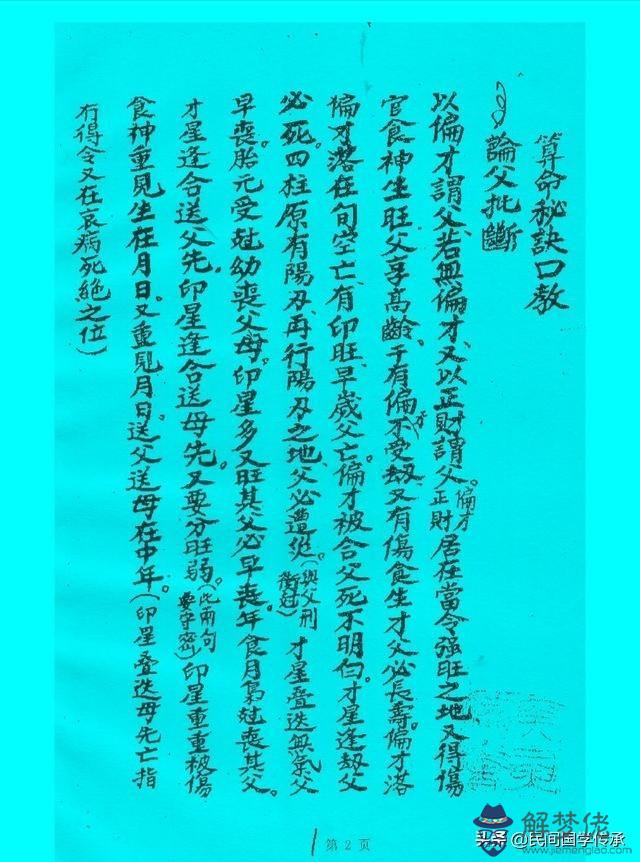 算命秘訣口教
論父批斷
以偏才謂父、若無偏才、又以正財謂父。偏才正財居在當令强旺之地又得傷
官食神生旺、父享高齡、干有偏才不受刼又有傷食生才父必長壽。偏才落
偏才落在旬空亡、有印旺、早歲父亡。偏才被合父死不明白。才星逢刼父
必死。四柱原有陽刃、再行陽刃之地、父必遭災。(與父刑衝尅)才星叠迭無氣父
早喪。胎元受尅幼喪父母。印星多又旺其父必早喪。年食月梟尅喪其父。
才星逢合送父先。印星逢合送母先。又要分旺弱。(此兩句要守密)印星重重被傷
食神重見生在月日。又重見月日。送父送母在中年。(印星叠迭母先亡指
有得令又在衰病死絶之位)
第2页
头条@民间国学传承
解梦佬
www.jiemenglao.com